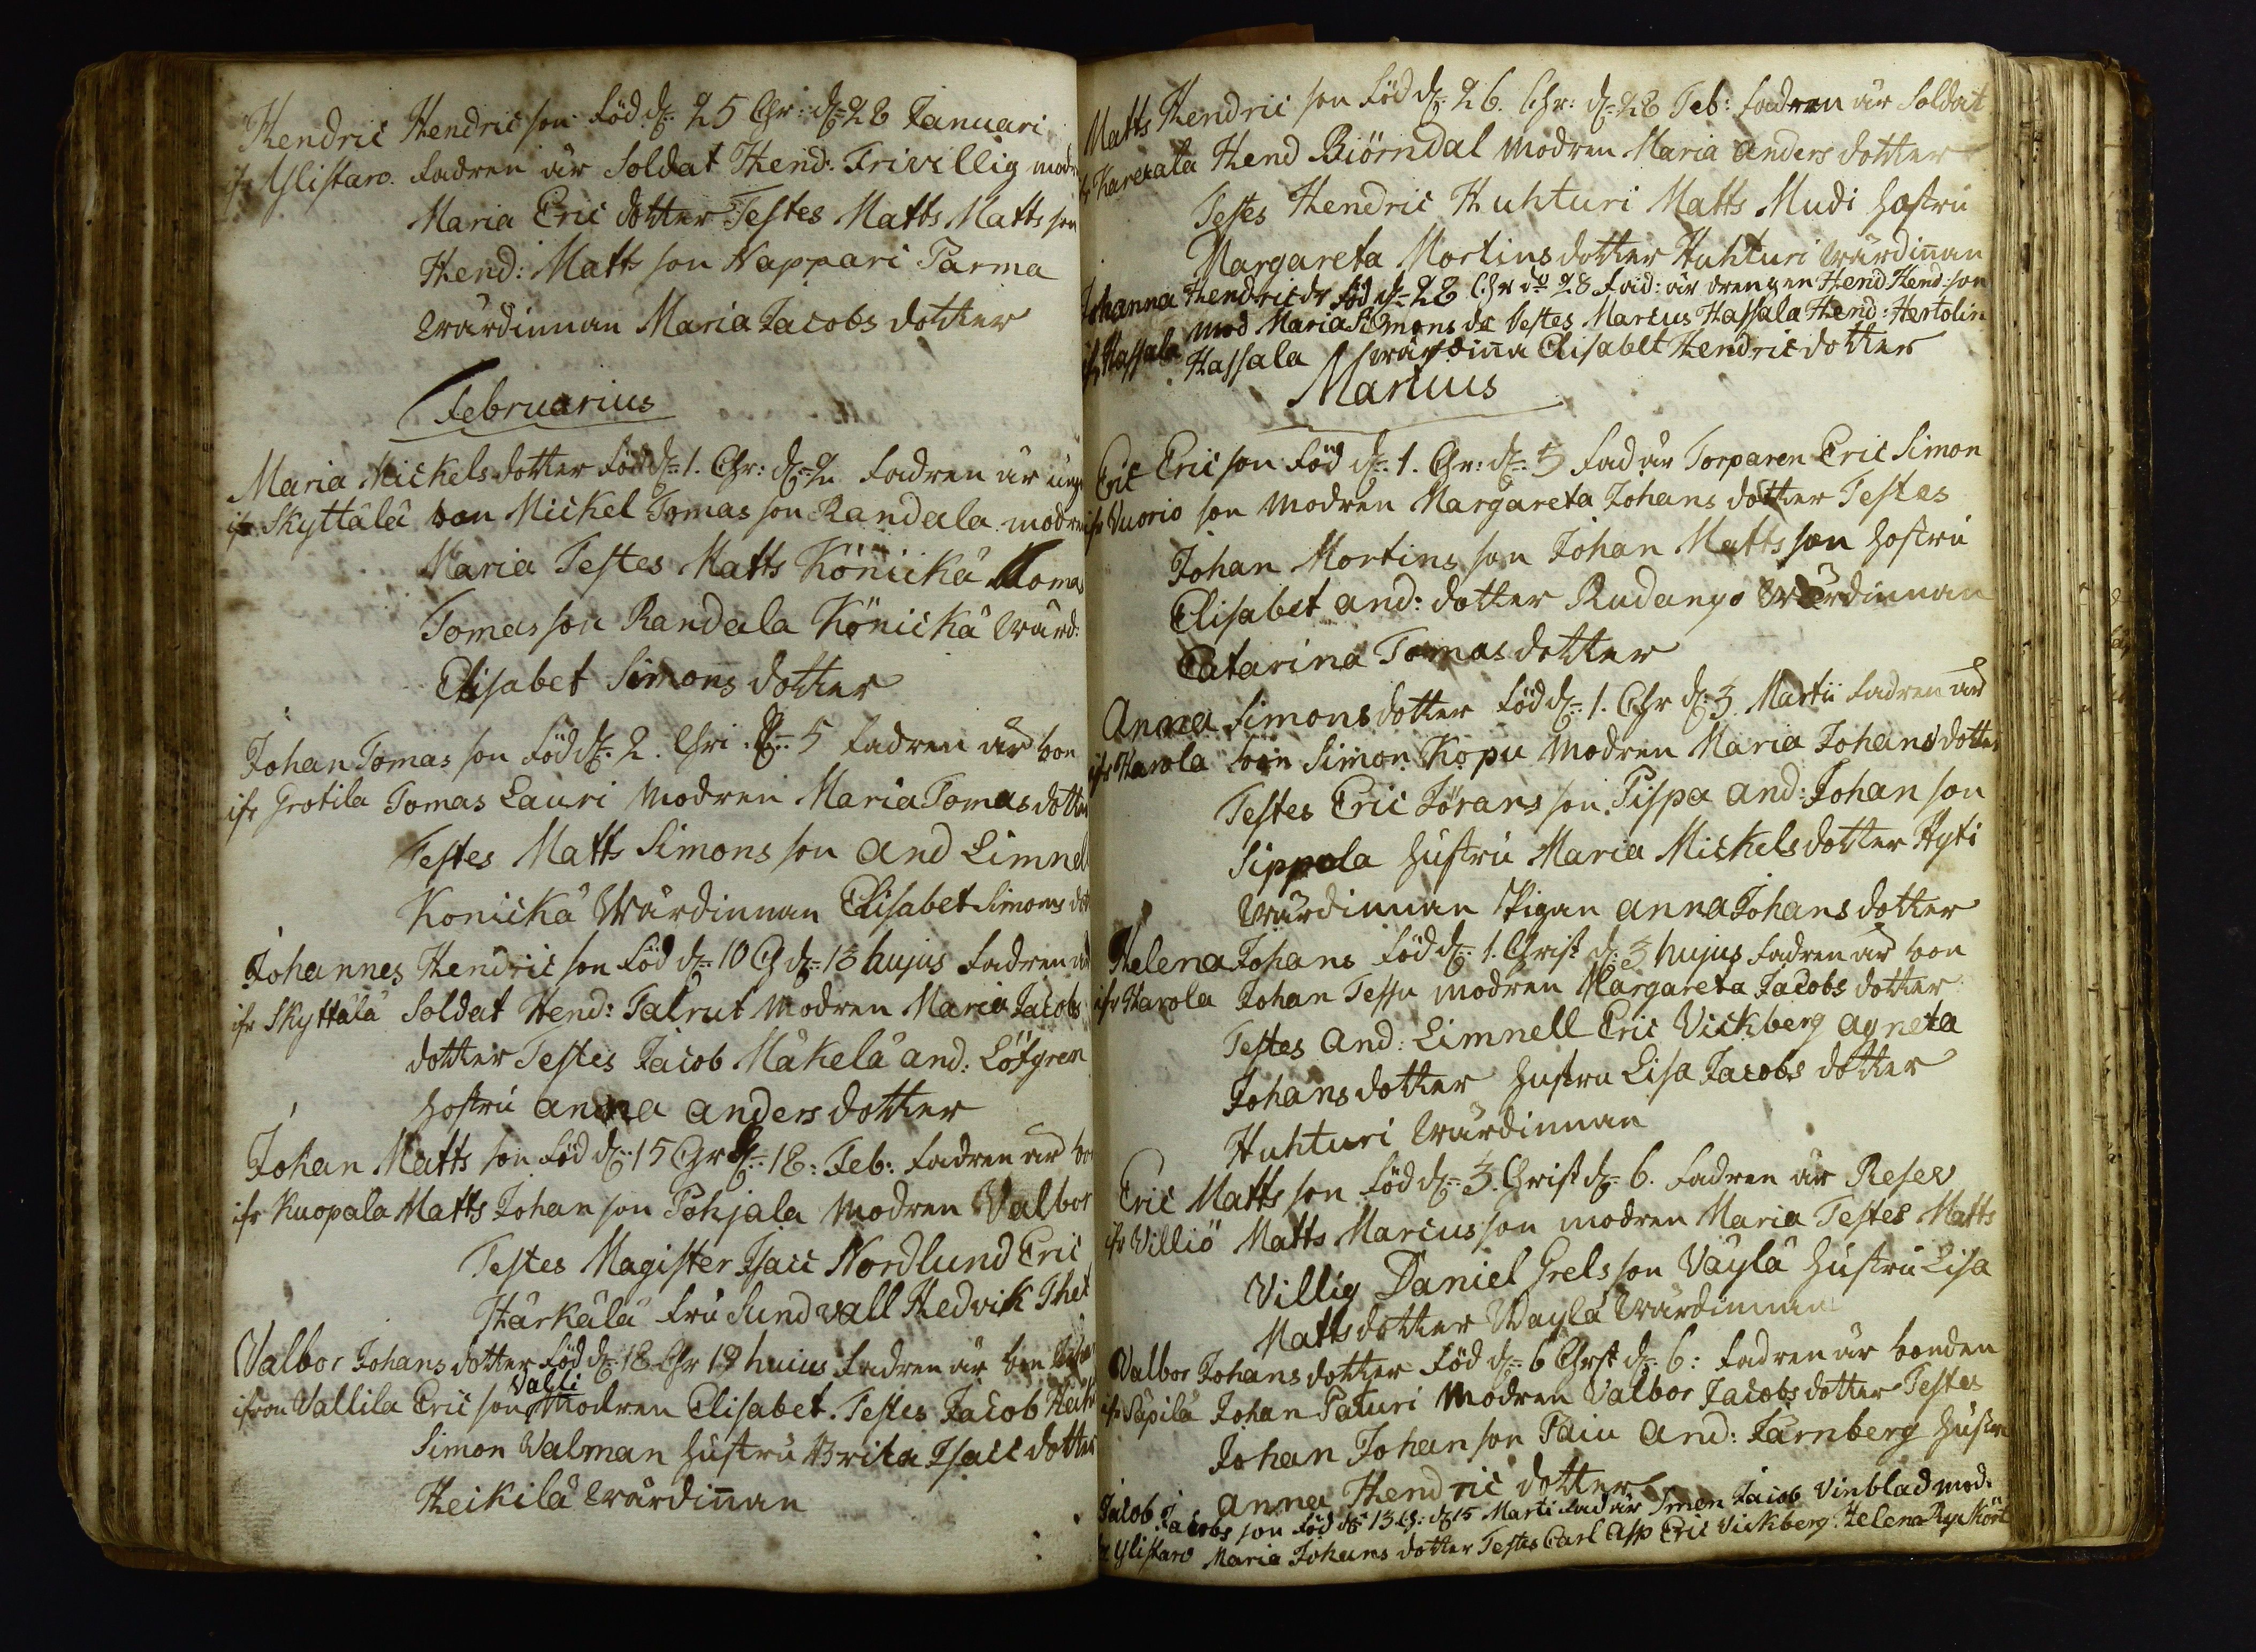 Hendric Hendric son född d: 25 Chr: d: 28 Januari
ifr Ylistaro. fadren är Soldat Hend: Frivillig modr
Maria Eric dotter Testes Matts Matts son
Hend: Matts son Nappari Parma
wärdinnan Maria Jacobs dotter
Februarius
Maria Mickels dotter född d: 1. Chr: d: 2 fadren är
ifr Skyttälä bon Mickel Tomas son Randala modren
Maria Testes Matts Könickä Tomas
Tomas son Randala Könickä wärd:
Elisabet Simons dotter
Johan Tomas son född d: 2. Chri. d: 5 fadren är bon
ifr Grotila Tomas Lauri modren Maria Tomas dotter
Testes Matts Simons son And Limnel
Konickä wärdinnan Elisabet Simons dot
Johannes Hendric son född d: 10 Ch d: 13 hujus fadren är
ifr Skyttälä Soldat Hend: Talrut modren Maria Jacobs
dotter Testes Jacob Mäkelä and: Löfgren
hostru anna anders dotter
Johan Matts son född d: 15 Chr d: 18: Feb: fadren är bo
ifr Kuopala Matts Johan son Pohjala modren Valbor
Testes Magister Isacc Nordlund Eric
Härkälä fru Sundvall Hedvik Thel
Valbor Johans dotter född d: 18 Chr 19 huius fadren är bon
ifron Vallila Eric son Valli modren Elisabet. Testes Jacob
Simon Valman hustru Brita Isacc dotter
Heikilä wärdinnan
Matts Hendric son född d: 26. Chr: d: 28 Feb: fadren är Soldat
Hend Biörndal modren Maria anders dotter
Testes Hendric Huhturi Matts Mudi hostru
Margareta Mortins dotter Huhturi wärdinnan
Johanna Hendrics dr född d: 28 Chr d: 28 fad: är drengen Hend Hend: son
ifr Hassala mod Maria Simons dr Testes Marcus Hassala Hend: Hertolin
Hassala wärdinna Elisabet Hendric dotter
Martius
Eric Eric son född d: 1. Chr: d: 3 fad är Torparen Eric Simon
ifr Vuorio son modren Margareta Johans dotter Testes
Johan Mortins son Johan Matts son hostru
Elisabet and: dotter Rudango wärdinnan
Catarina Tomas dotter
Anna Simons dotter född d: 1. Chr d: 3 Martii fadren är
ifr Harola bon Simon Kopu modren Maria Johans dotter
Testes Eric Jörans son Pispa and: Johan son
Sippola hustru Maria Mickels dotter Hyti
wärdinnan Pigan anna Johans dotter
Helena Johans född d: 1. Christ d: 3 hujus fadren är bon
ifr Harola Johan Tessu modren Margareta Jacobs dotter
Testes And: Limnell Eric Vickberg agneta
Johans dotter hustru Lisa Jacobs dotter
Huhturi wärdinnan
Eric Matts son född d: 3. Christ d: 6. fadren är Reserv
ifr Villiö Matts Marcus son modren Maria Testes Matts
Villig Daniel Grels son Väylä hustru Lisa
Matts dotter Wäylä wärdinnan
Valbor Johans dotter född d: 6 Chrst d: 6: fadren är bonden
ifr Säpilä Johan Pauri modren Valbor Jacobs dotter Testes
Johan Johan son Paiu And: Järnberg hustru
anna Hendric dotter
Jacob Jacobs son född d: 13 Ch: d: 15 Marti fad är Jacob Vinblad mod:
Ylistaro Maria Johans dotter Testes Carl Asp Eric Vickberg. Helena